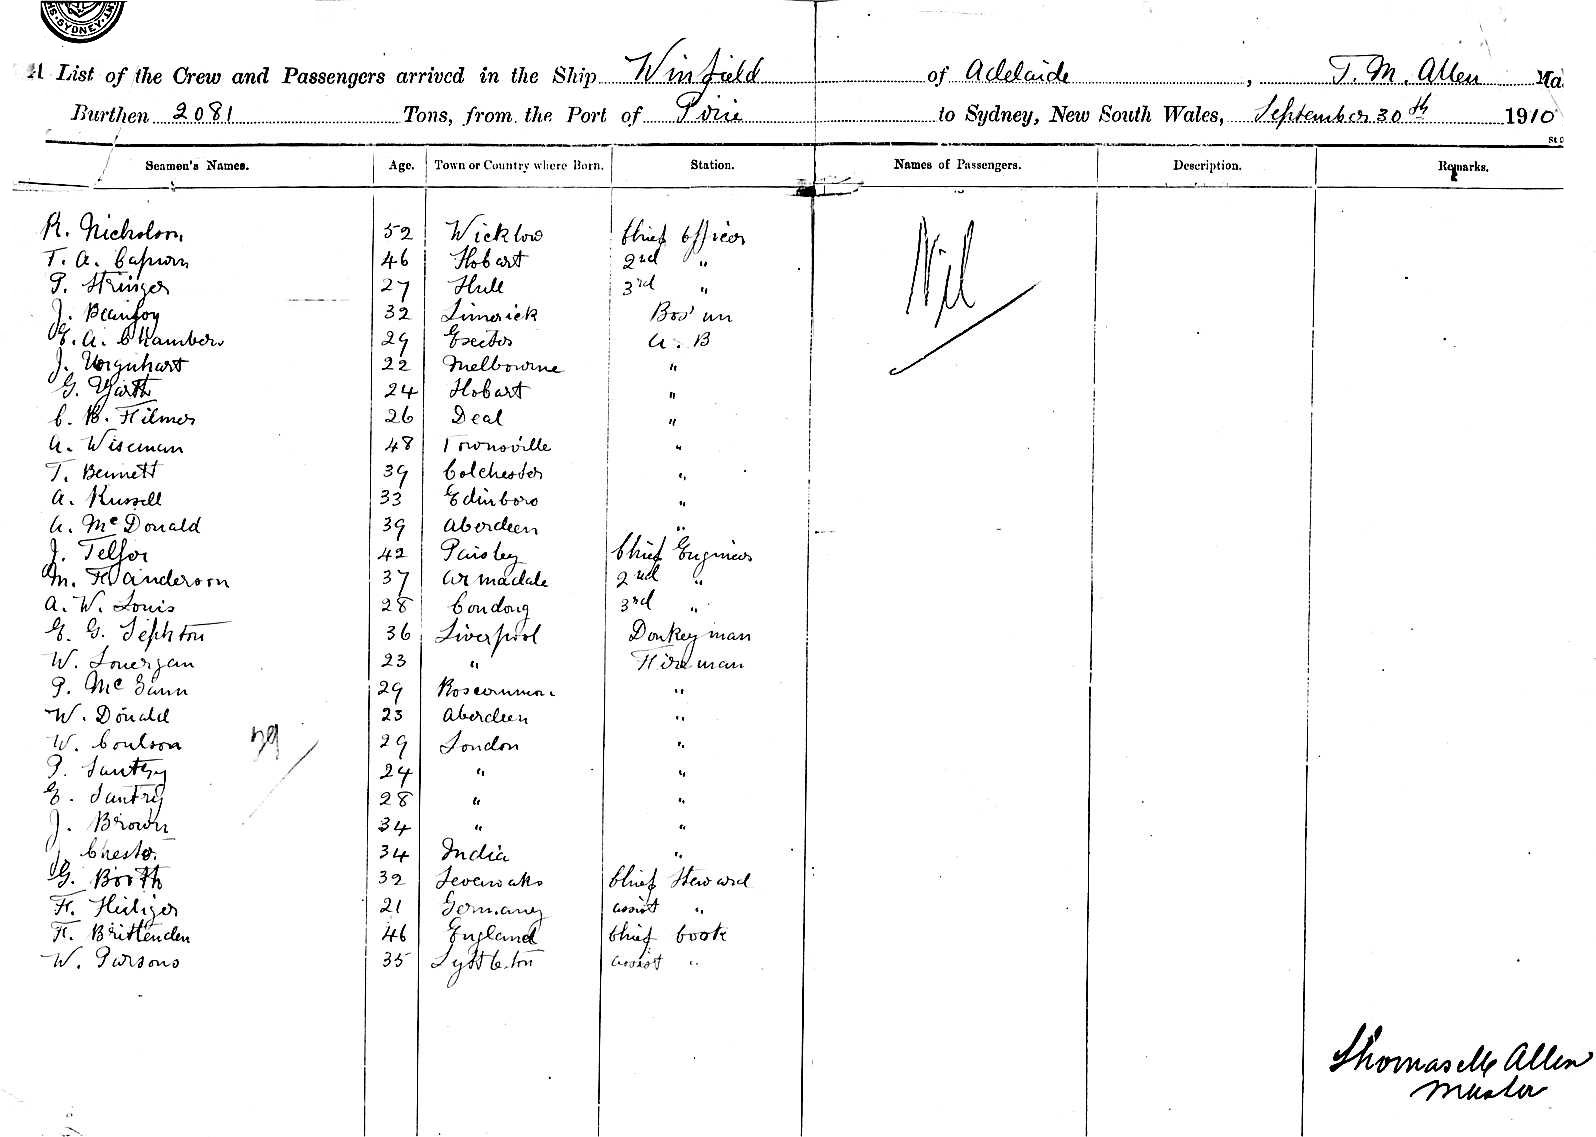 SYDNEY
A List of the Crew and Passengers arrived in the Ship Winfield of Adelaide, T. M. Allen Ma
Burthen 2081 Tons, from the Port of Pirie to Sydney, New South Wales, September 30th 1910
Seamen's Names. Age. Town or Country where Born. Station. Names of Passengers. Description. Remarks.
R. Nicholson 52 Wicklow Chief Officer
T. A. Capron 46 Hobart 2nd "
P. Stringer 27 Hull 3rd "
Nil
J. Beaufoy 32 Limerick Bos'un
E. A. Chambers 29 Exeter A. B
J. Urquhart 22 Melbourne "
G. Garth 24 Hobart "
C. B. Hilmer 26 Deal "
A. Wiseman 48 Townsville "
T. Bennett 39 Colchester "
A. Russell 33 Edinboro "
A. McDonald 39 Aberdeen "
J. Telfor 42 Paisley Chief Engineer
M. H Anderson 37 Armadale 2nd "
A. W. Louis 28 Condong 3rd "
E. G. Sephton 36 Liverpool Donkeyman
W. Lonergan 23 " Fireman
P. McGann 29 Roscommon "
W. Donald 23 Aberdeen "
W. Coulson 29 London "
P. Santry 24 " "
E. Santry 28 " "
J. Brown 34 " "
J. Chester 34 India "
G. Booth 32 Sevenoaks Chief Steward
F. Heiliger 21 Germany assist "
F. Brittenden 46 England Chief Cook
W. Parsons 35 Lyttleton assist "
Thomas M Allen
Master